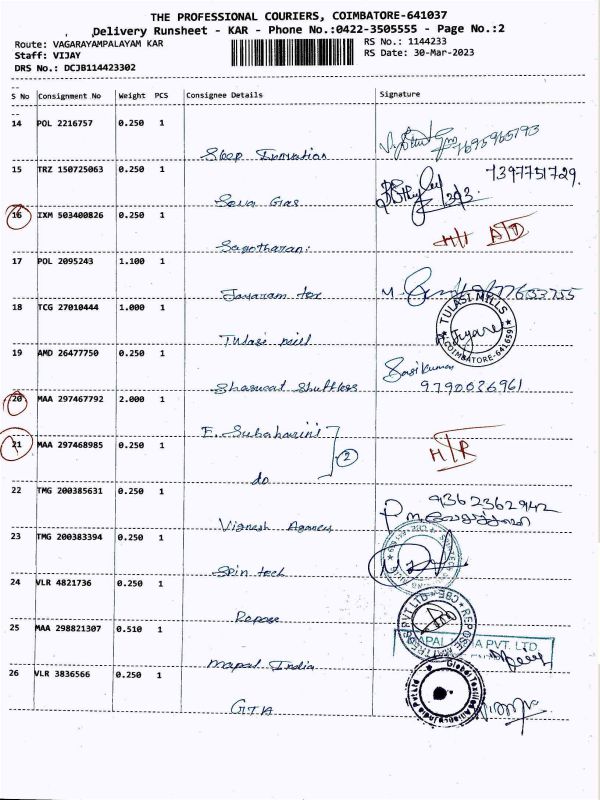 THE PROFESSIONAL COURIERS, COIMBATORE-641037
Delivery Runsheet - KAR - Phone No.:0422-3505555 - Page No.:2
Route: VAGARAYAMPALAYAM KAR RS No.: 1144233
Staff: VIJAY RS Date: 30-Mar-2023
DRS No.: DCJB114423302
S No Consignment No Weight PCS Consignee Details Signature
14 POL 2216757 0.250 1
Sleep Innovation
15 TRZ 150725063 0.250 1 7397751729.
Seva Gas
16 IXM 503400826 0.250 1
17 POL 2095243 1.100 1
Jayaram tex
18 TCG 27010444 1.000 1
TULASI MILLS
COIMBATORE-641659
Tulasi mill
19 AMD 26477750 0.250 1 Sasikumar
9790036961
20 MAA 297467792 2.000 1
E. Subaharini
21 MAA 297468985 0.250 1 2
do
22 TMG 200385631 0.250 1 9362362942
Vignesh Agency
23 TMG 200383394 0.250 1
Spin tech
24 VLR 4821736 0.250 1
Repose
25 MAA 298821307 0.510 1
MAPAL INDIA PVT. LTD.
Mapal India
26 VLR 3836566 0.250 1
GTA